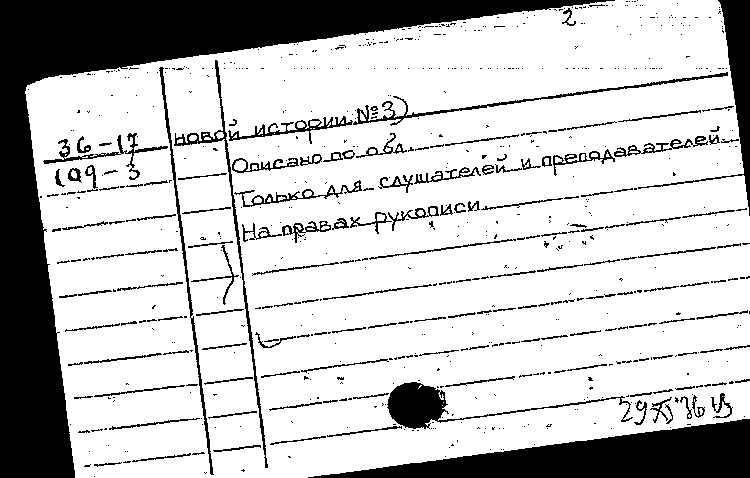 2
36-17
109-3
новой истории. №3).
Описано по обл.
Только для слушателей и преподавателей.
На правах рукописи.
29 XI 36